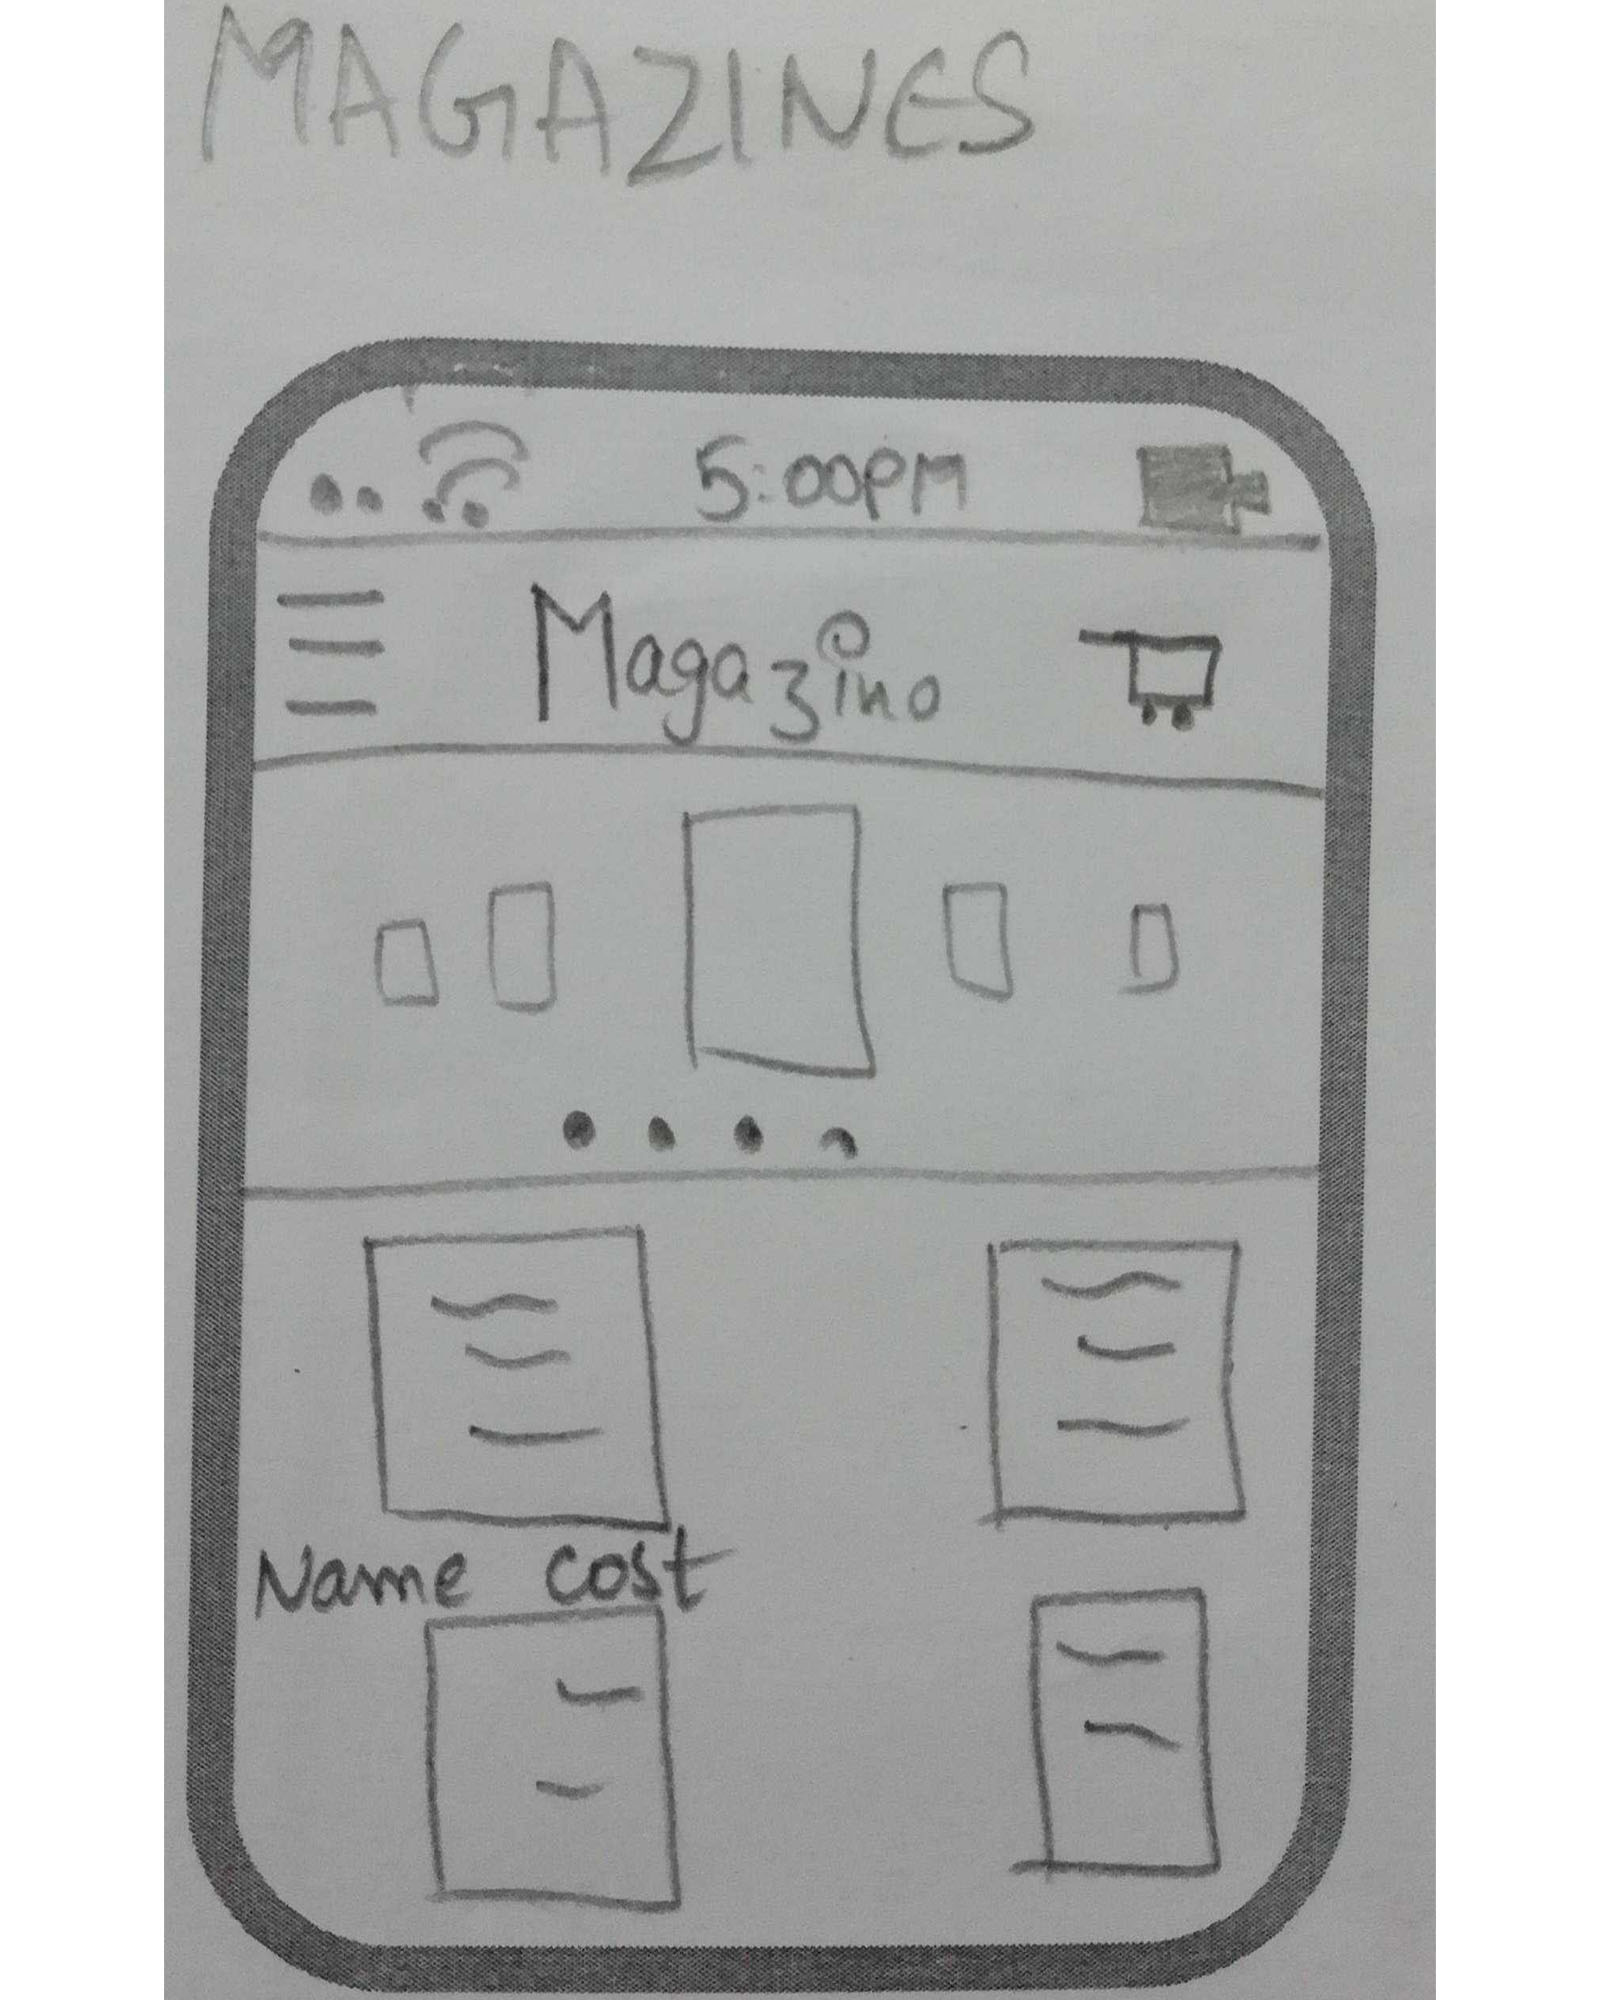 MAGAZINES
5:00PM
Magazino
Name cost